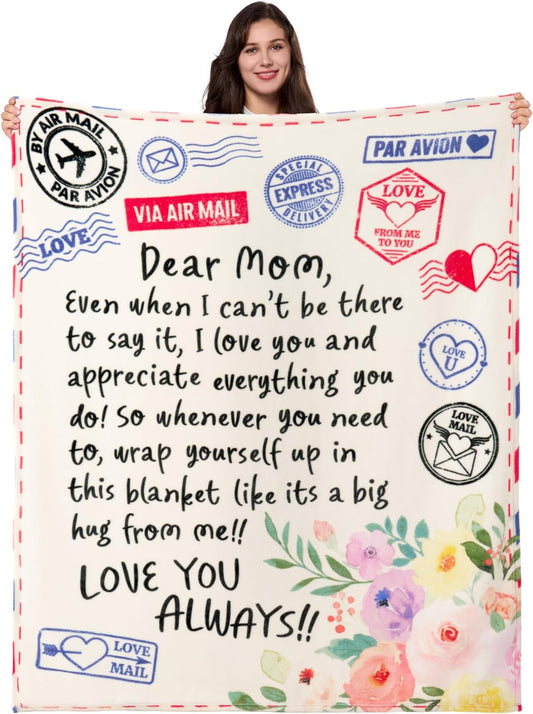 BY AIR MAIL
PAR AVION
SPECIAL
EXPRESS
DELIVERY
PAR AVION
VIA AIR MAIL
LOVE
FROM ME
TO YOU
LOVE
Dear Mom,
Even when I can't be there
to say it, I love you and
appreciate everything you
do! So whenever you need
to, wrap yourself up in
this blanket like its a big
hug from me!!
LOVE YOU
ALWAYS!!
LOVE
U
LOVE
MAIL
LOVE
MAIL